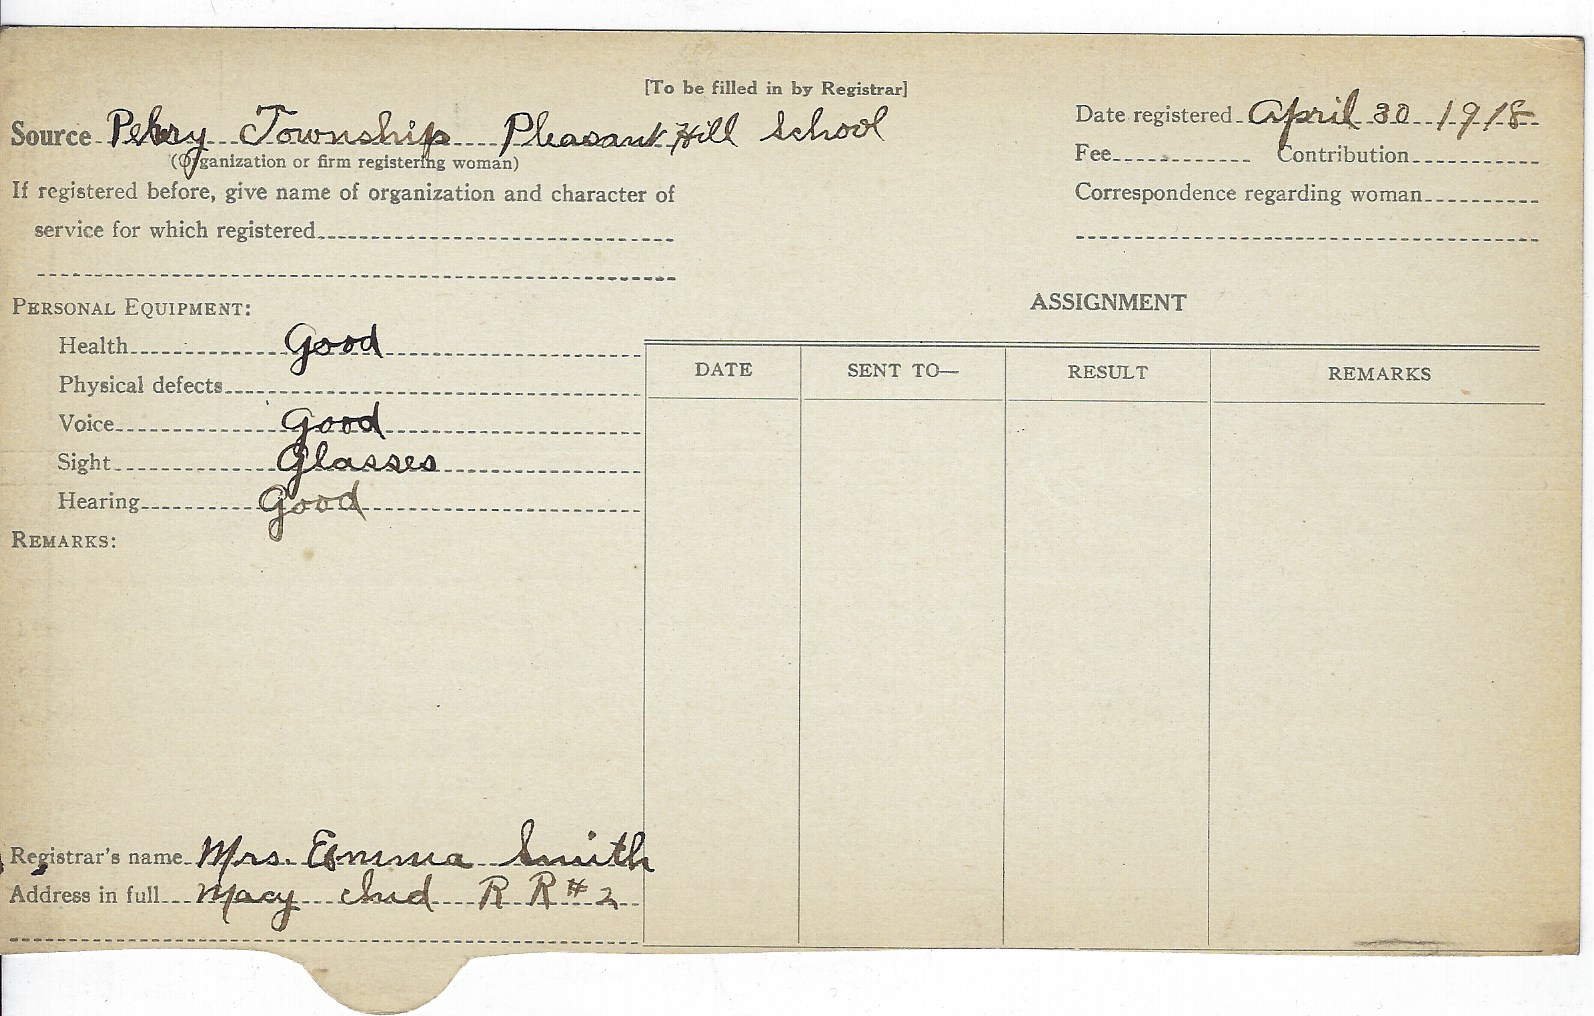 [To be filled in by Registrar]
Source Perry Township Pleasant Hill School
(Organization or firm registering woman)
Date registered April 30 1918
Fee Contribution
If registered before, give name of organization and character of
service for which registered
Correspondence regarding woman
PERSONAL EQUIPMENT:
Health Good
Physical defects
Voice Good
Sight Glasses
Hearing Good
REMARKS:
ASSIGNMENT
DATE SENT TO— RESULT REMARKS
Registrar's name Mrs. Emma Smith
Address in full Macy Ind R R # 2